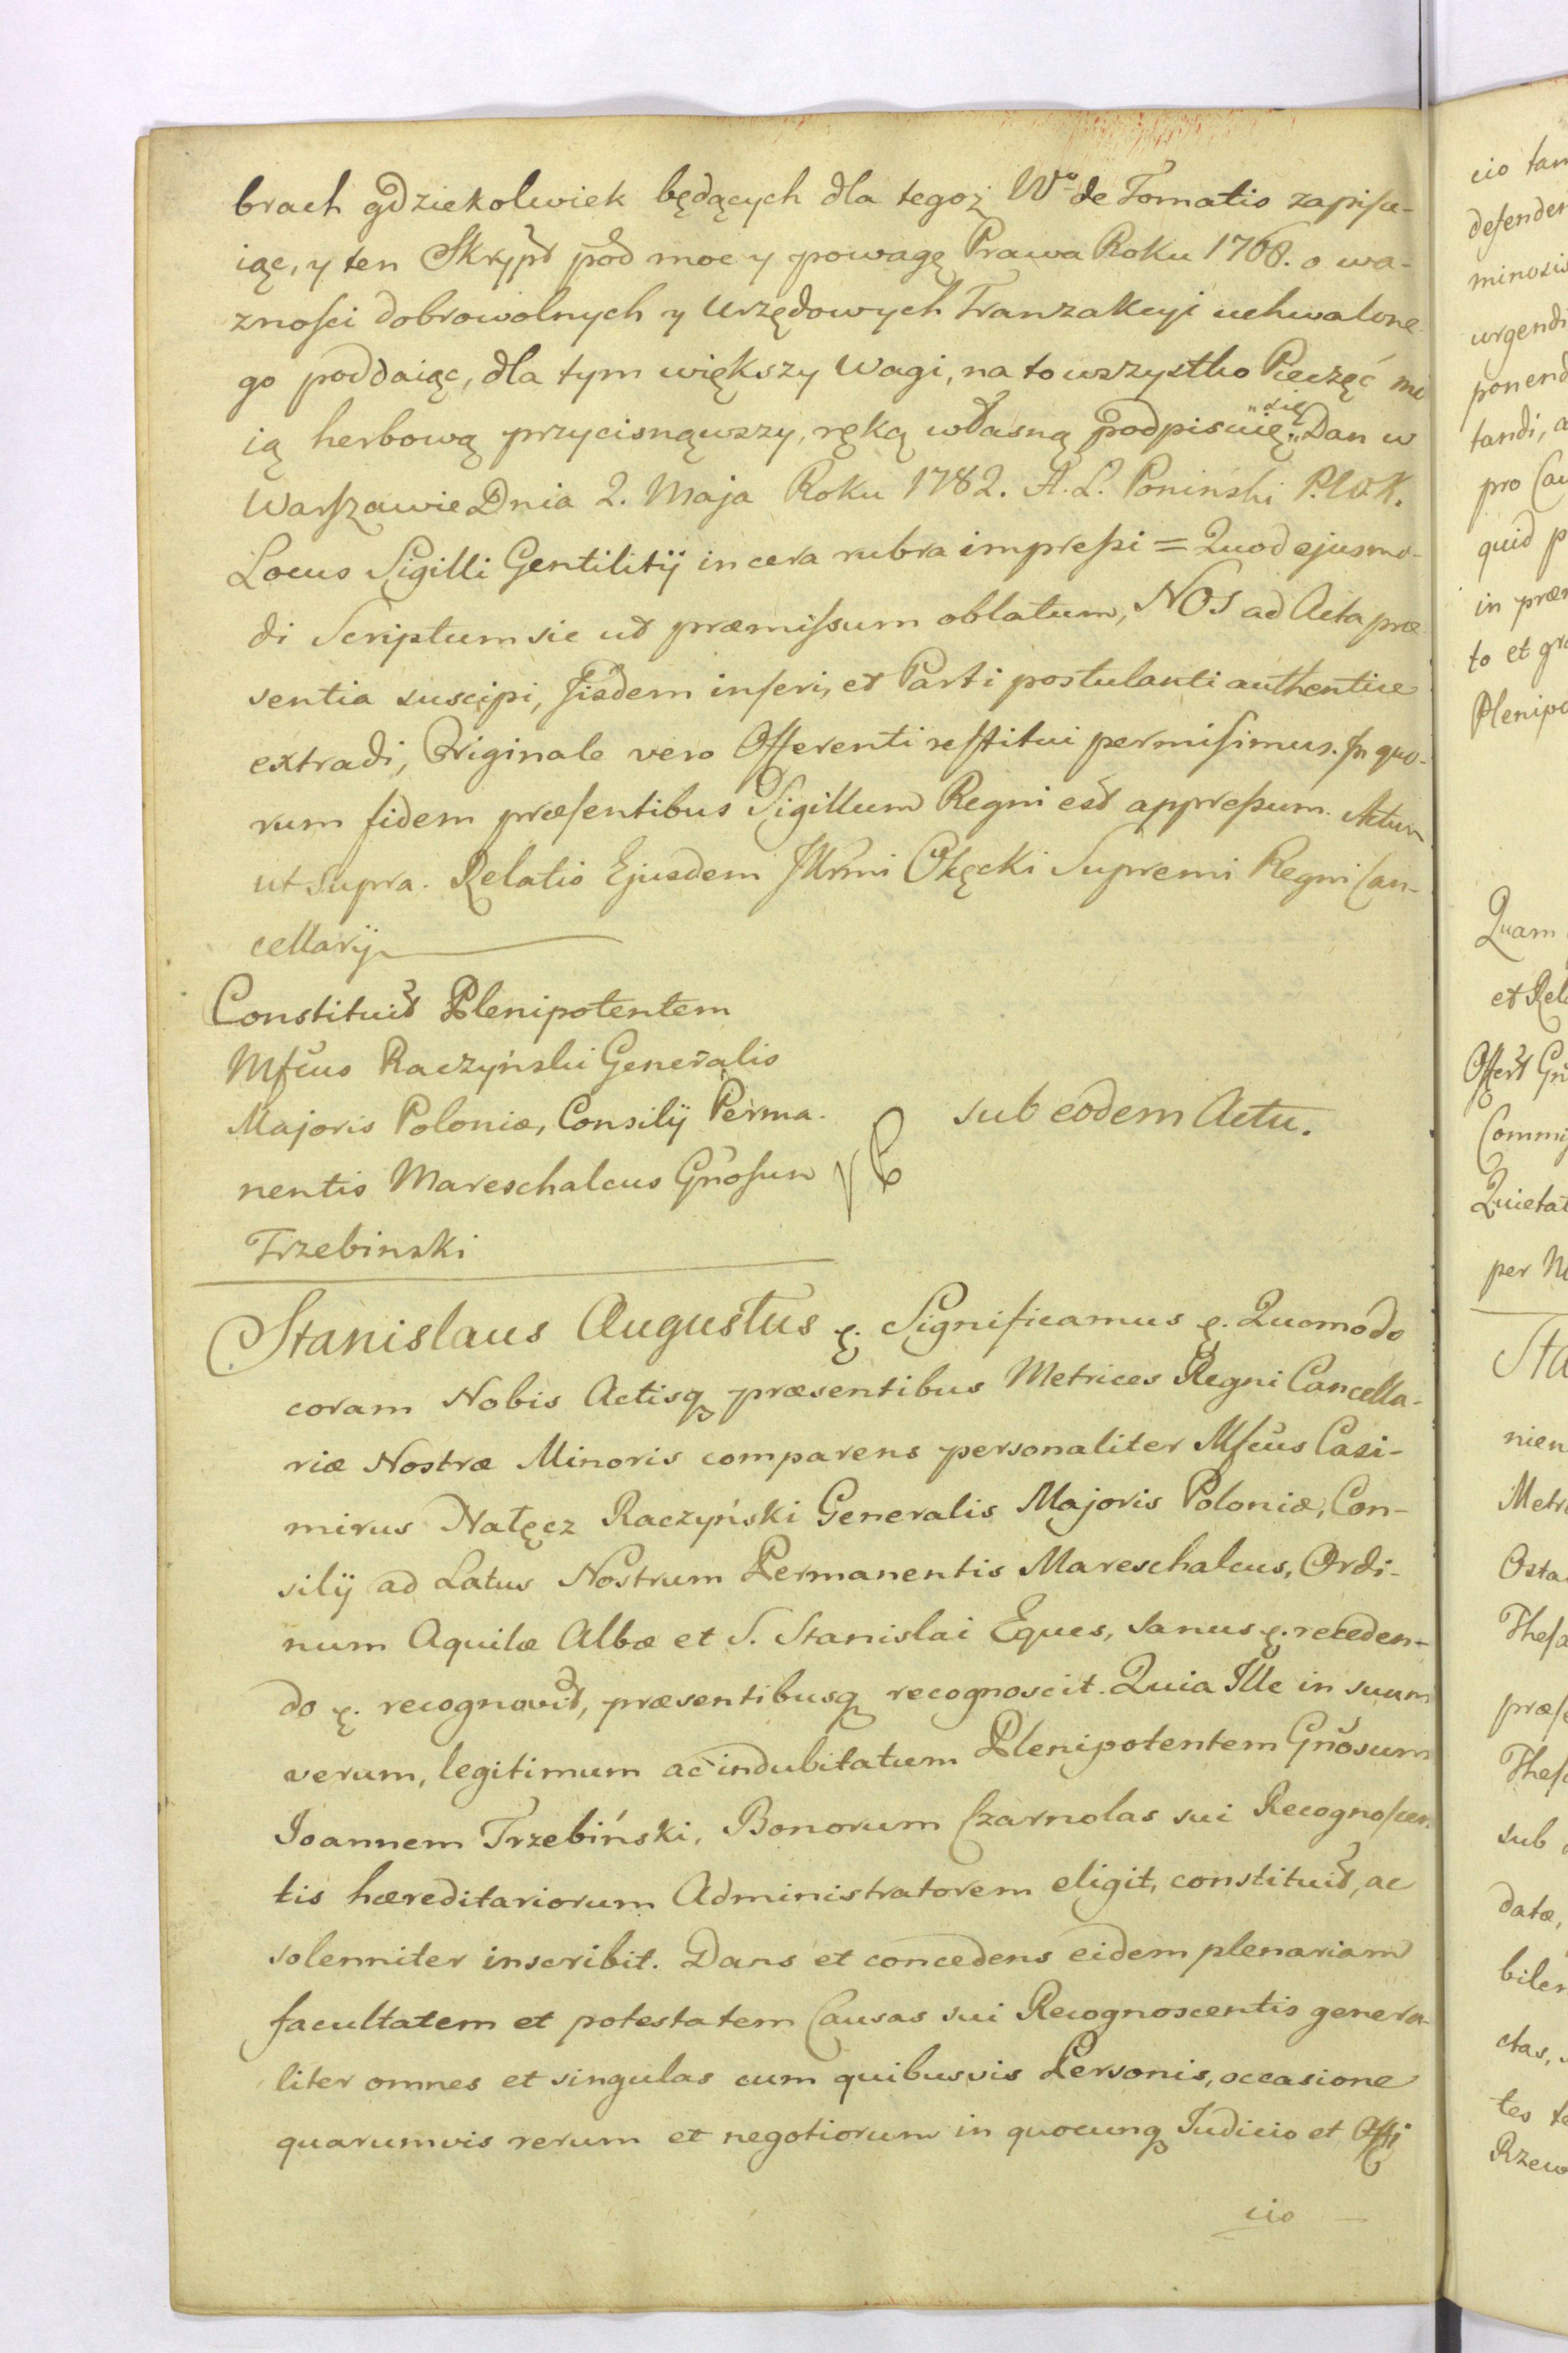 brach gdziekolwiek będących dla tegoż Wo de Tomatis zapisu-
iąc, y ten Skrypt pod moc y powagę Prawa Roku 1768. o wa-
zności dobrowolnych y Urzędowych Tranzakcyi uchwalone-
go poddaiąc, dla tym większy Wagi, na to wszystko Pieczęć mo
ią herbową przycisnąwszy, ręką własną podpisuię „się„ Dan w
Warszawie Dnia 2. Maja Roku 1782. A. L. Poninski P.W.K.
Locus Sigilli Gentilitij in cera rubra impressi = Quod ejusmo-
di Scriptum sic ut præmissum oblatum, NOS ad Acta præ
sentia suscipi, Jisdem inseri, et Parti postulanti authentice
extradi, Originale vero Offerenti restitui permisimus. In quo-
rum fidem præsentibus Sigillum Regni est appressum. Actum
ut supra. Relatio Ejusdem Jllrmi Okęcki Supremi Regni Can-
cellarij
Constituit Plenipotentem
Mfcus Raczyński Generalis
Majoris Poloniæ, Consilij Perma-
nentis Mareschalcus Gnosum
Trzebinski
sub eodem Actu.
Stanislaus Augustus &. Significamus &. Quomodo
coram Nobis Actisq præsentibus Metrices Regni Cancella-
riæ Nostræ Minoris comparens personaliter Mfcus Casi-
mirus Nałęcz Raczyński Generalis Majoris Poloniæ, Con-
silij ad Latus Nostrum Permanentis Mareschalcus, Ordi-
num Aquilæ Albæ et S. Stanislai Eques, sanus &. receden-
do &. recognovit, præsentibusq recognoscit. Quia Ille in suum
verum, legitimum ac indubitatum Plenipotentem Gnosum
Ioannem Trzebiński, Bonorum Czarnolas sui Recognoscen
tis hæreditariorum Administratorem eligit, constituit, ac
solenniter inscribit. Dans et concedens eidem plenariam
facultatem et potestatem Causas sui Recognoscentis genera-
liter omnes et singulas cum quibusvis Personis, occasione
quarumvis rerum et negotiorum in quocunq Iudicio et Offi
cio
cio tam
defenden
minoris
urgendi
ponend
tandi, a
pro Cau
quid p
in præm
to et gra
Plenipo
Quam
et Rela
Offert Gn
Commi
Quietat
per M
Sta
nien
Metr
Osta
Thesa
præs
Thes
sub
datæ,
biler
ctas,
tes
Rzew